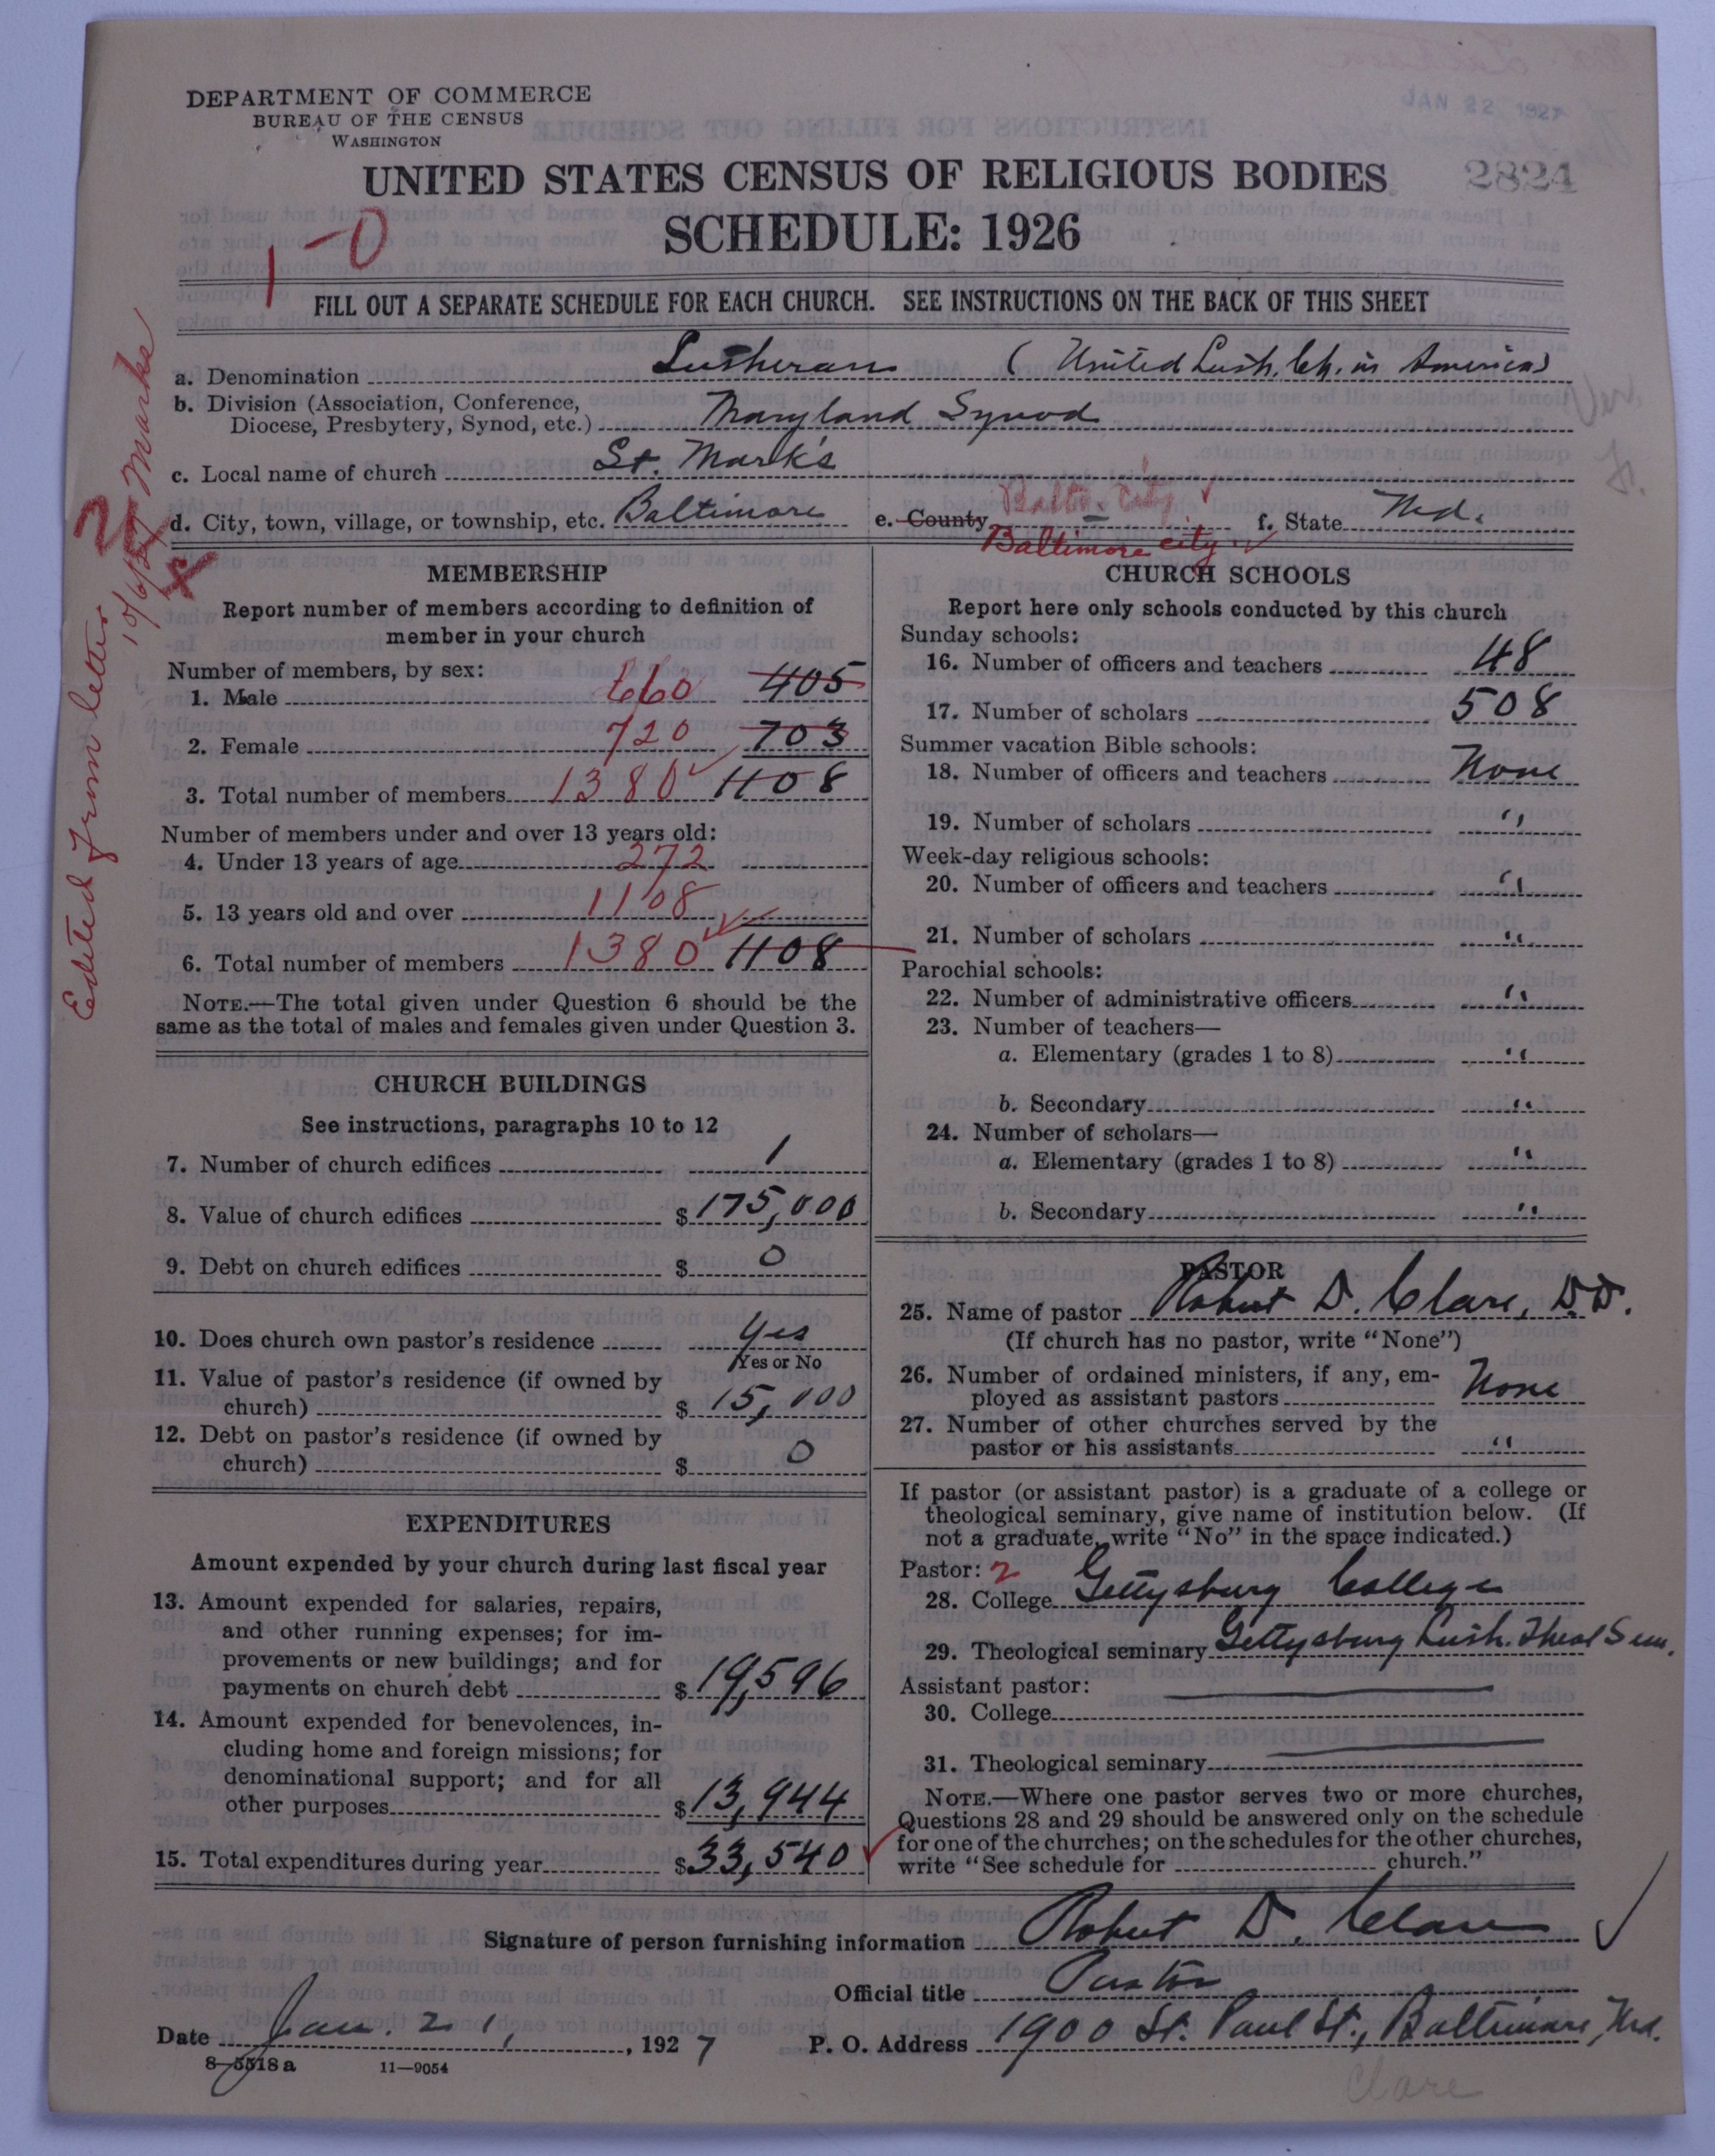 DEPARTMENT OF COMMERCE
BUREAU OF THE CENSUS
WASHINGTON
JAN 22 1927
UNITED STATES CENSUS OF RELIGIOUS BODIES
2824
SCHEDULE: 1926
1-0
FILL OUT A SEPARATE SCHEDULE FOR EACH CHURCH. SEE INSTRUCTIONS ON THE BACK OF THIS SHEET
a. Denomination Lutheran (United Luth. Ch. in America)
b. Division (Association, Conference,
Diocese, Presbytery, Synod, etc.) Maryland Synod
c. Local name of church St. Mark's
d. City, town, village, or township, etc. Baltimore e. County Balto. City f. State Md.
Baltimore city
Edited from letter
10/6/27 Marks
MEMBERSHIP
Report number of members according to definition of
member in your church
Number of members, by sex:
1. Male 660 405
2. Female 720 703
3. Total number of members 1380 1108
Number of members under and over 13 years old:
4. Under 13 years of age 272
5. 13 years old and over 1108
6. Total number of members 1380 1108
NOTE.—The total given under Question 6 should be the
same as the total of males and females given under Question 3.
CHURCH BUILDINGS
See instructions, paragraphs 10 to 12
7. Number of church edifices 1
8. Value of church edifices $175,000
9. Debt on church edifices $ 0
10. Does church own pastor's residence Yes
Yes or No
11. Value of pastor's residence (if owned by
church) $ 15,000
12. Debt on pastor's residence (if owned by
church) $ 0
EXPENDITURES
Amount expended by your church during last fiscal year
13. Amount expended for salaries, repairs,
and other running expenses; for im-
provements or new buildings; and for
payments on church debt $ 19,596
14. Amount expended for benevolences, in-
cluding home and foreign missions; for
denominational support; and for all
other purposes $ 13,944
15. Total expenditures during year $ 33,540
CHURCH SCHOOLS
Report here only schools conducted by this church
Sunday schools:
16. Number of officers and teachers 48
17. Number of scholars 508
Summer vacation Bible schools:
18. Number of officers and teachers None
19. Number of scholars "
Week-day religious schools:
20. Number of officers and teachers "
21. Number of scholars "
Parochial schools:
22. Number of administrative officers "
23. Number of teachers—
a. Elementary (grades 1 to 8) "
b. Secondary "
24. Number of scholars—
a. Elementary (grades 1 to 8) "
b. Secondary "
PASTOR
25. Name of pastor Robert D. Clare, D.D.
(If church has no pastor, write "None")
26. Number of ordained ministers, if any, em-
ployed as assistant pastors None
27. Number of other churches served by the
pastor or his assistants "
If pastor (or assistant pastor) is a graduate of a college or
theological seminary, give name of institution below. (If
not a graduate, write "No" in the space indicated.)
Pastor: 2
28. College Gettysburg College
29. Theological seminary Gettysburg Luth. Theol Sem.
Assistant pastor:
30. College
31. Theological seminary
NOTE.—Where one pastor serves two or more churches,
Questions 28 and 29 should be answered only on the schedule
for one of the churches; on the schedules for the other churches,
write "See schedule for church."
Signature of person furnishing information Robert D. Clare
Official title Pastor
Date Jan. 21, 1927 P. O. Address 1900 St. Paul St., Baltimore, Md.
8-5518 a 11—9054
Clare